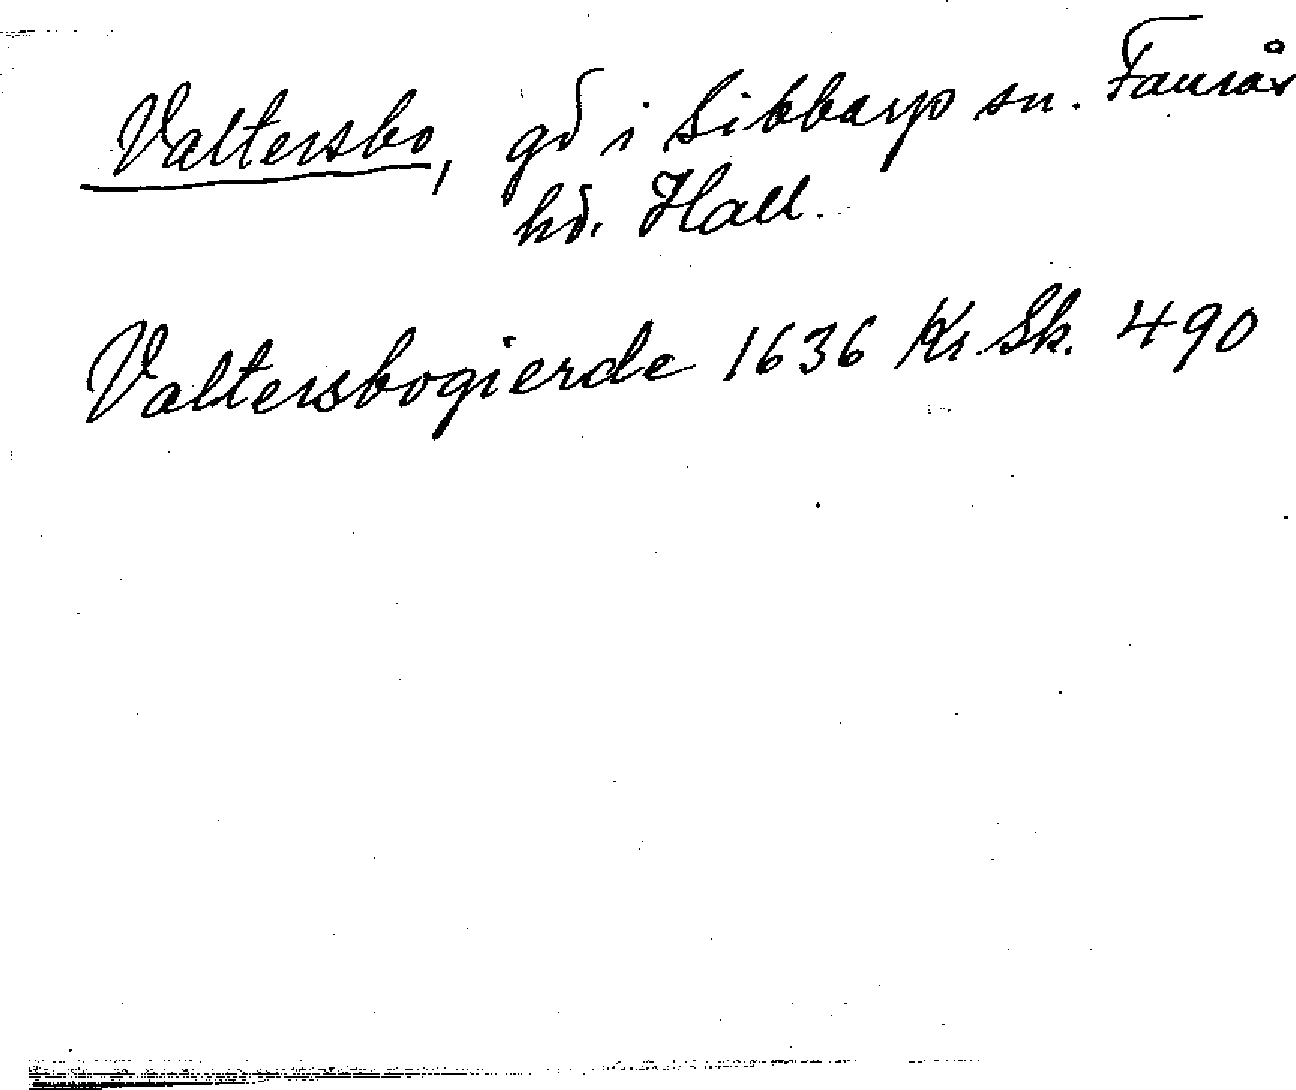 Valtersbo, gd i Sibbarp sn. Faurås
hd. Hall.
Valtersbogierde 1636 Kr. Sk. 490